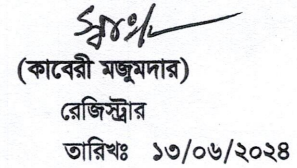 (কাবেরী মজুমদার)
রেজিস্ট্রার
তারিখঃ ১৩/০৬/২০২৪